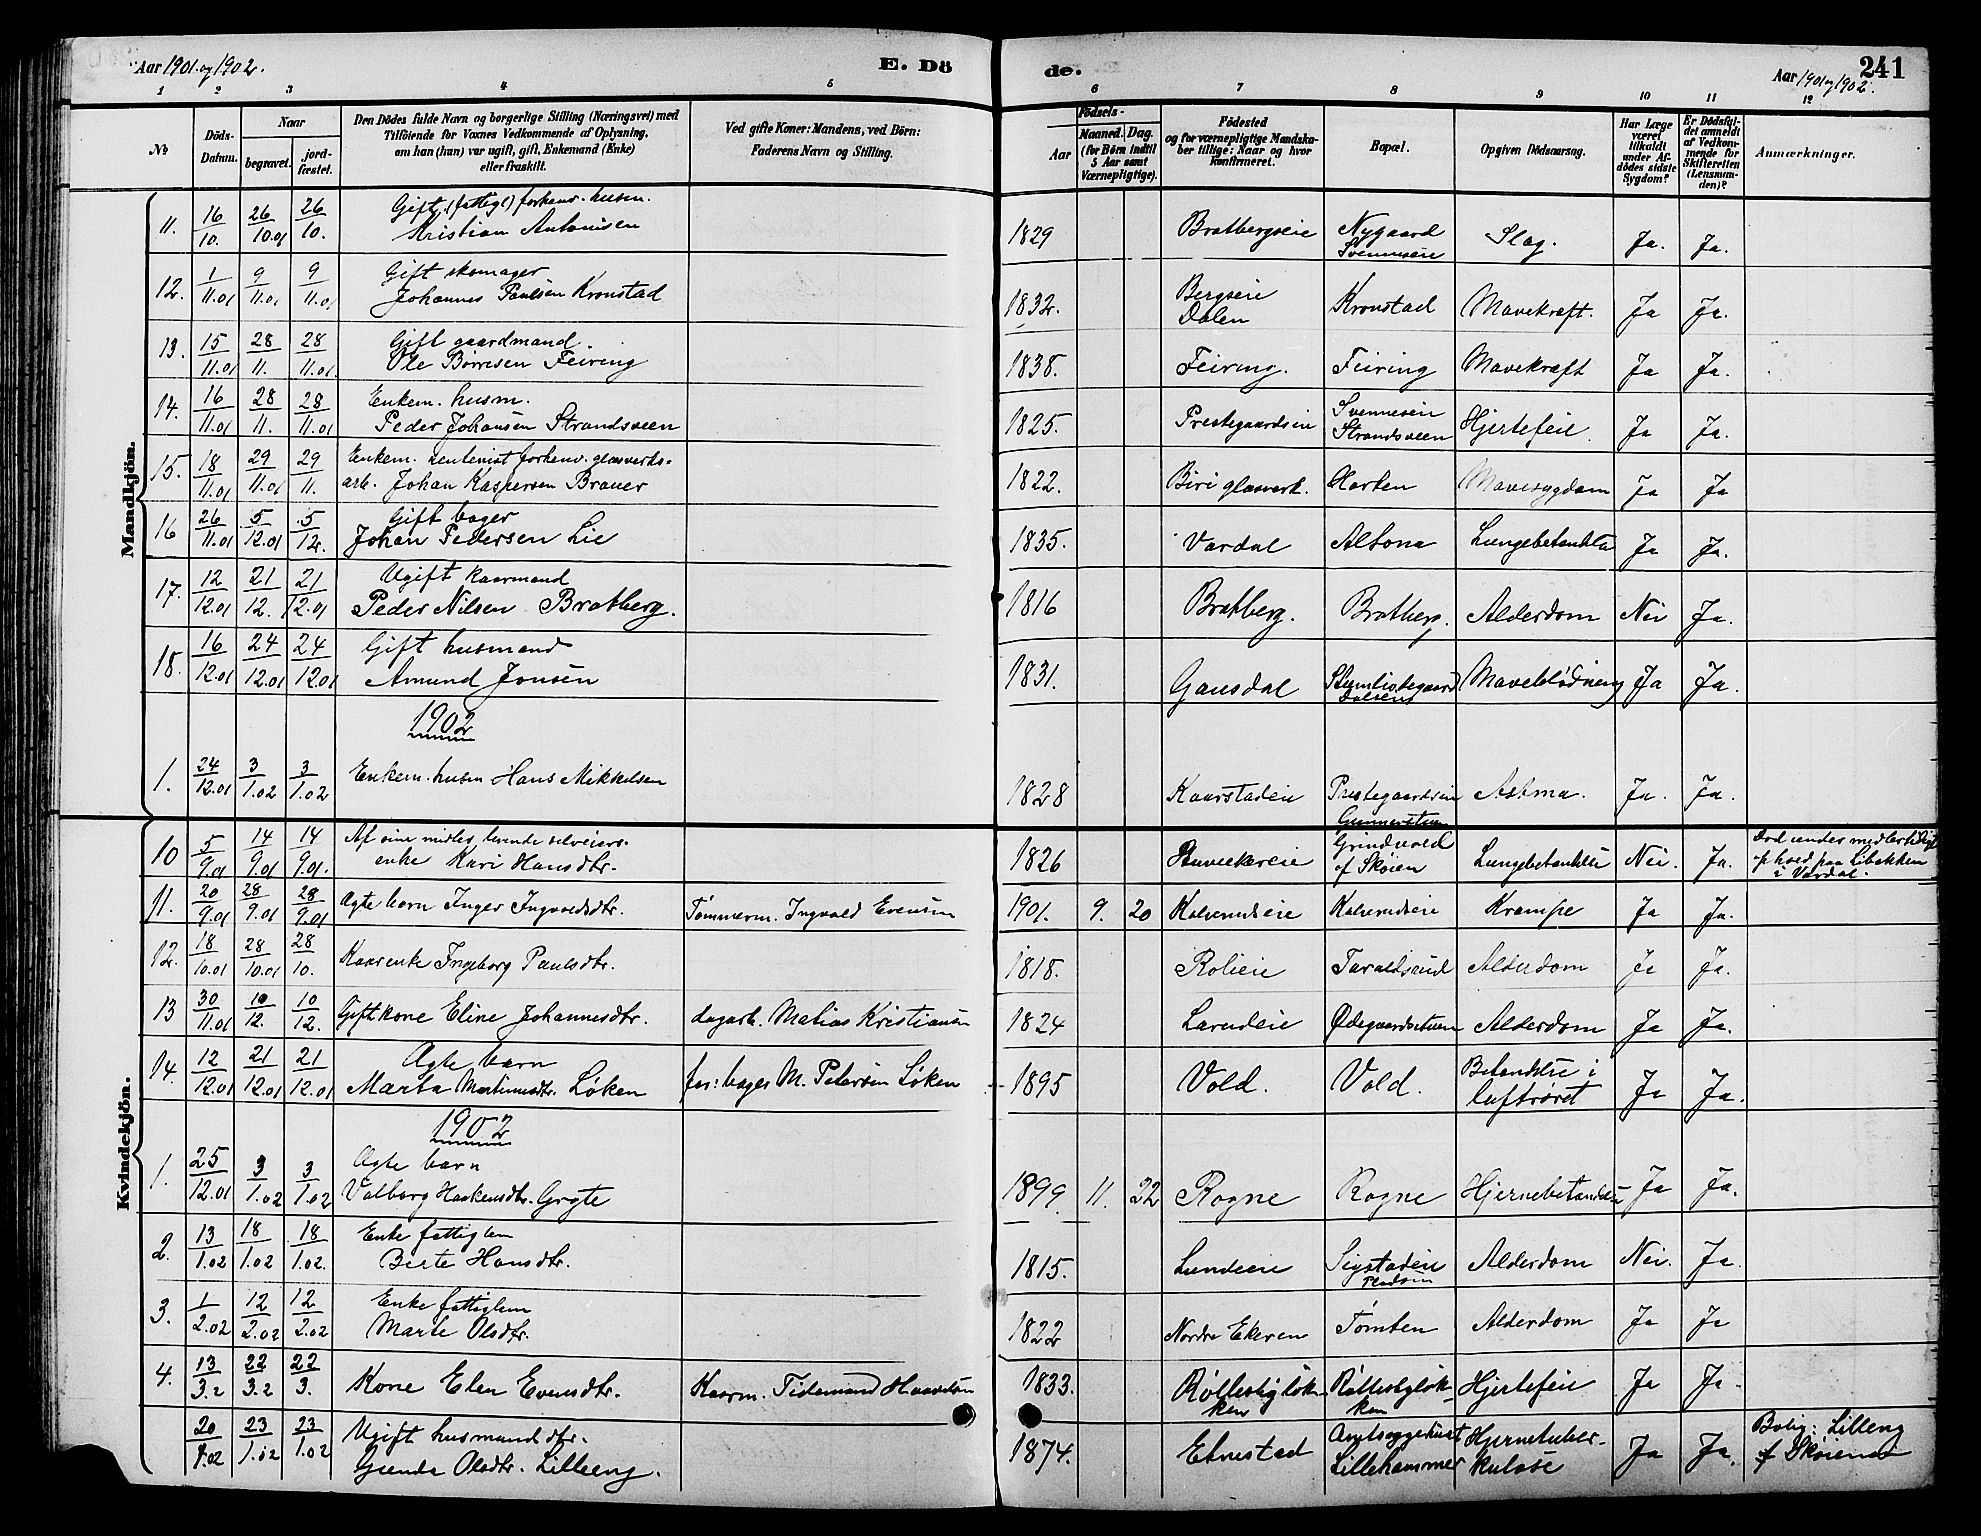 Aar 1901 og 1902.
E. Dö
de.
Aar 1901 og 1902.
241
1 2 3 4 5 6 7 8 9 10 11 12
No
Döds-Datum.
Naar
begravet.
jordfæstet.
Den Dödes fulde Navn og borgerlige Stilling (Næringsvei) med
Tilföiende for Voxnes Vedkommende af Oplysning,
om han (hun) var ugift, gift, Enkemand (Enke)
eller fraskilt.
Ved gifte Koner: Mandens, ved Börn:
Faderens Navn og Stilling.
Födsels-
Aar
Maaned. Dag.
(for Börn indtil
5 Aar samt
Værnepligtige).
Födested
og for værnepligtige Mandskaber tillige: Naar og hvor
konfirmeret.
Bopæl.
Opgiven Dödsaarsag.
Har Læge været tilkaldt under Afdödes sidste Sygdom?
Er Dödsfaldet anmeldt af Vedkommende for Skifteretten (Lensmanden)?
Anmærkninger.
Mandkjön.
11. 16/10. 26/10.01 26/10. Gift, (fattigl) forhenv. husm. Kristian Antonisen 1829 Bratbergseie Nygaard Svenneseie Slag. Ja. Ja.
12. 1/11.01 9/11.01 9/11.01 Gift skomager Johannes Paulsen Kronstad 1832. Bergseie Dalen Kronstad Mavekræft. Ja Ja.
13. 15/11.01 28/11. 28/11.01 Gift gaardmand. Ole Børresen Feiring 1838. Feiring. Feiring Mavekræft Ja Ja.
14. 16/11.01 28/11. 28/11.01 Enkem. husm. Peder Johansen Strandsveen 1825. Prestegaardseie Svenneseie Strandsveen Hjertefeil. Ja Ja.
15. 18/11.01 29/11.01 29/11. Enkem. rentenist forhenv. glasverks=arb. Johan Kaspersen Brauer 1822. Biri glasverk. Mavesygdom Ja Ja
16 26/11.01 5/12.01 5/12. Gift bager Johan Pedersen Lie 1835. Vardal Altona Lungebetændelse Ja Ja.
17. 12/12.01 21/12. 21/12.01 Ugift kaarmand Peder Nilsen Bratberg. 1816 Bratberg. Bratberg. Alderdom Nei Ja.
18. 16/12.01 24/12.01 24/12.01 Gift husmand Amund Jonsen 1831. Gausdal Maveblødning Ja Ja.
1902
1. 24/12.01 3/1.02 3/1.02 Enkem. husm Hans Mikkelsen 1828 Kaarstadeie Prestegaardseie Gunnerstuen Astma. Ja. Ja.
Kvindekjön.
10 5/9.01 14/9.01 14/9.01. Af sine midler levende selveiers. enke Kari Hansdtr. 1826 Grindvold af Skøien Lungebetændelse Nei. Ja. Død under midlertidigt ophold paa Libakken i Vardal.
11. 20/9.01 28/9.01 28/9.01 Ægte barn Inger Ingvoldsdtr. Tømmerm. Ingvald Evensen 1901. 9. 20 Kalverudseie Kalverudseie Krampe Ja Ja.
12. 18/10.01 28/10.01 28/10. Kaarenke Ingeborg Paulsdtr. 1818. Rolieie Taraldsrud Alderdom Ja Ja.
13 30/11.01 10/12. 10/12. Gift kone Eline Johannesdtr. dagarb. Matias Kristiansen 1824 Larudeie Ødegaardstuen Alderdom Ja Ja.
14. 12/12.01 21/12.01 21/12.01 Ægte barn Marta Martinusdtr. Løken far: bager M. Petersen Løken 1895 Vold. Vold. Betændelse i luftrøret Ja Ja.
1902
1. 25/12.01 3/1.02 3/1.02 Ægte barn Valborg Haakensdtr. Gryte 1899. 11. 22 Rogne Rogne Hjernebetændelse Ja Ja.
2. 13/1.02 18/1.02 18/1.02. Enke fattiglem Berte Hansdtr. 1815. Lundeeie Sigstadeie Alderdom Nei. Ja.
3. 1/2.02 12/2.02 12/2.02 Enke fattiglem Marte Olsdtr. 1822 Nordre Ekeren Tømten Alderdom Ja Ja
4. 13/3.2 22/3.2 22/3. Kone Elen Evensdtr. Kaarm. Tidemand Haavelsen 1833. Røllestigløkken Røllestigløkken Hjertefeil Ja Ja.
20/1.02 23/1.02 23/1.02 Ugift husmandsdtr. Gunda Olsdtr. Lilleeng. 1874. Elnestad Amtssygehuset Lillehammer Hjernetuberkulose Ja Ja. Bolig: Lilleng